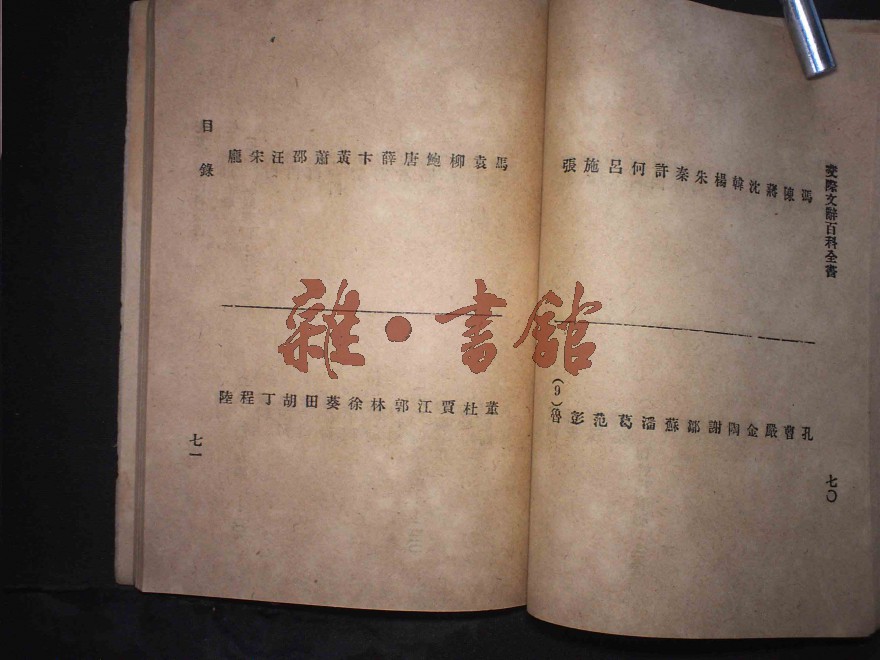 交際文辭百科全書
馮陳蔣沈韓楊朱秦許何呂施張
孔曹嚴金陶謝鄒蘇潘葛范彭魯
(9)
七〇
目錄
馬袁柳鮑唐薛卞黃蕭邵汪宋龐
董杜賈江郭林徐蔡田胡丁程陸
七一
雜·書館